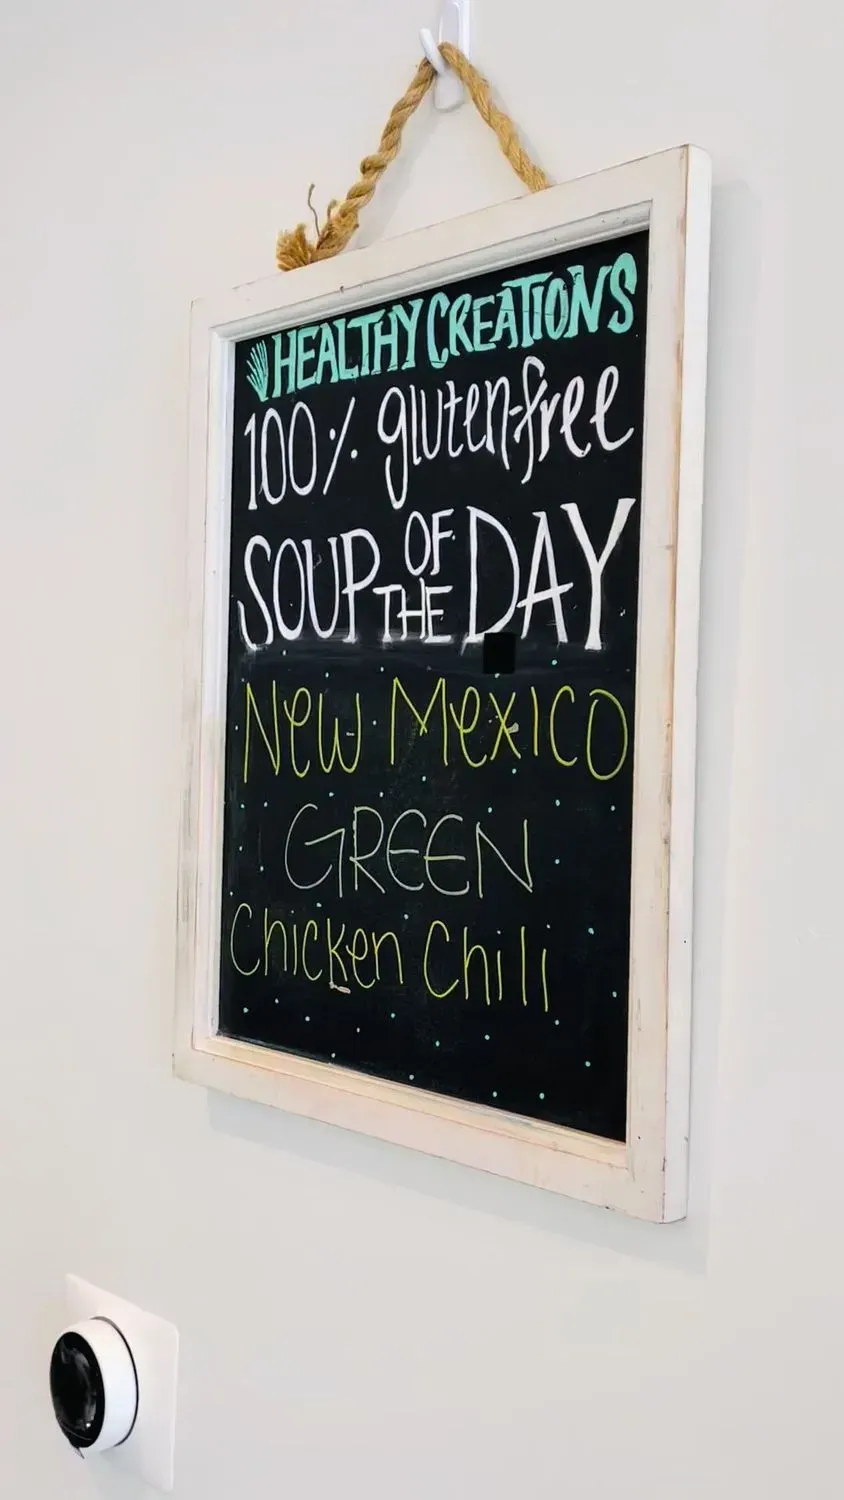 HEALTHY CREATIONS
100% gluten-free
SOUP OF THE DAY
New Mexico
GREEN
Chicken Chili